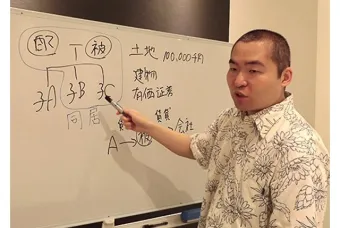 配 被
土地 100,000千円
建物
有価証券
子A 子B 子C
同居
賃貸
A→ →会社